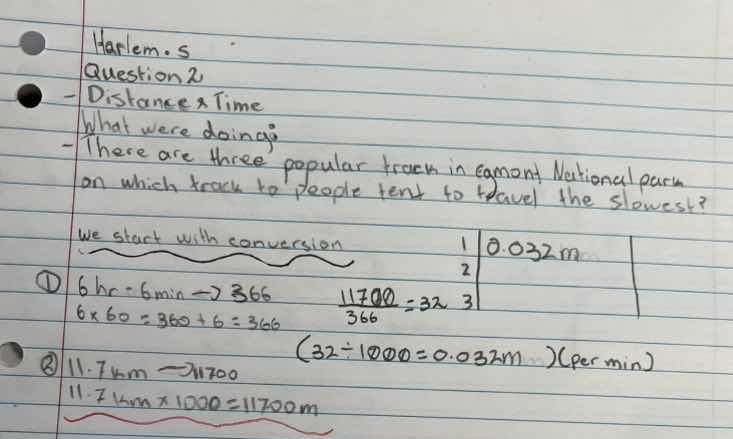 Harlem.s
Question 2
- Distance & Time
What were doing:
- There are three popular track in egmont National park
on which track to people tent to travel the slowest?
we start with conversion
1 0.032m
2
3
① 6hr : 6min → 366
6 x 60 = 360 + 6 = 366
11700/366 = 32
(32 ÷ 1000 = 0.032m) (per min)
② 11.7km → 11700
11.7km x 1000 = 11700m